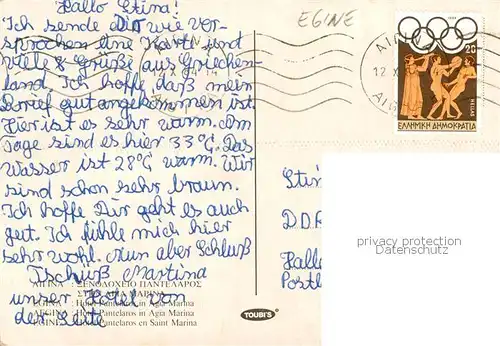 Hallo Stina!
Ich sende Dir wie ver-
sprochen eine Karte und
viele Grüße aus Griechen-
land. Ich hoffe daß mein
Brief gut angekommen ist.
Hier ist es sehr warm. Am
Tage sind es hier 33°C. Das
Wasser ist 28°C warm. Wir
sind schon sehr braun.
Ich hoffe Dir geht es auch
gut. Ich fühle mich hier
sehr wohl. Nun aber Schluß
Tschüß Martina
unser Hotel von
der Seite
ΑΙΓΙΝΑ : ΞΕΝΟΔΟΧΕΙΟ ΠΑΝΤΕΛΑΡΟΣ
ΜΑΡΙΝΑ
Hotel Pantelaros in Agia Marina
Hotel Pantelaros in Agia Marina
Hotel Pantelaros en Saint Marina
TOUBI'S
EGINE
20
HELLAS
ΕΛΛΗΝΙΚΗ ΔΗΜΟΚΡΑΤΙΑ
12 X
Stina
DDR
Hallo
Postl
privacy protection
Datenschutz